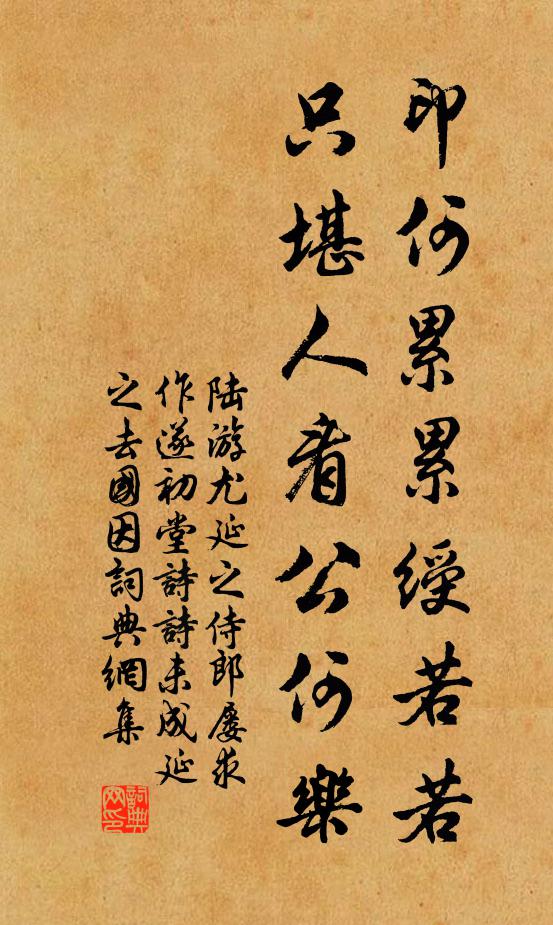 印何累累綬若若
只堪人看公何樂
陸游尤延之侍郎屢求
作遂初堂詩詩未成延
之去國因詞典網集
詞典網印